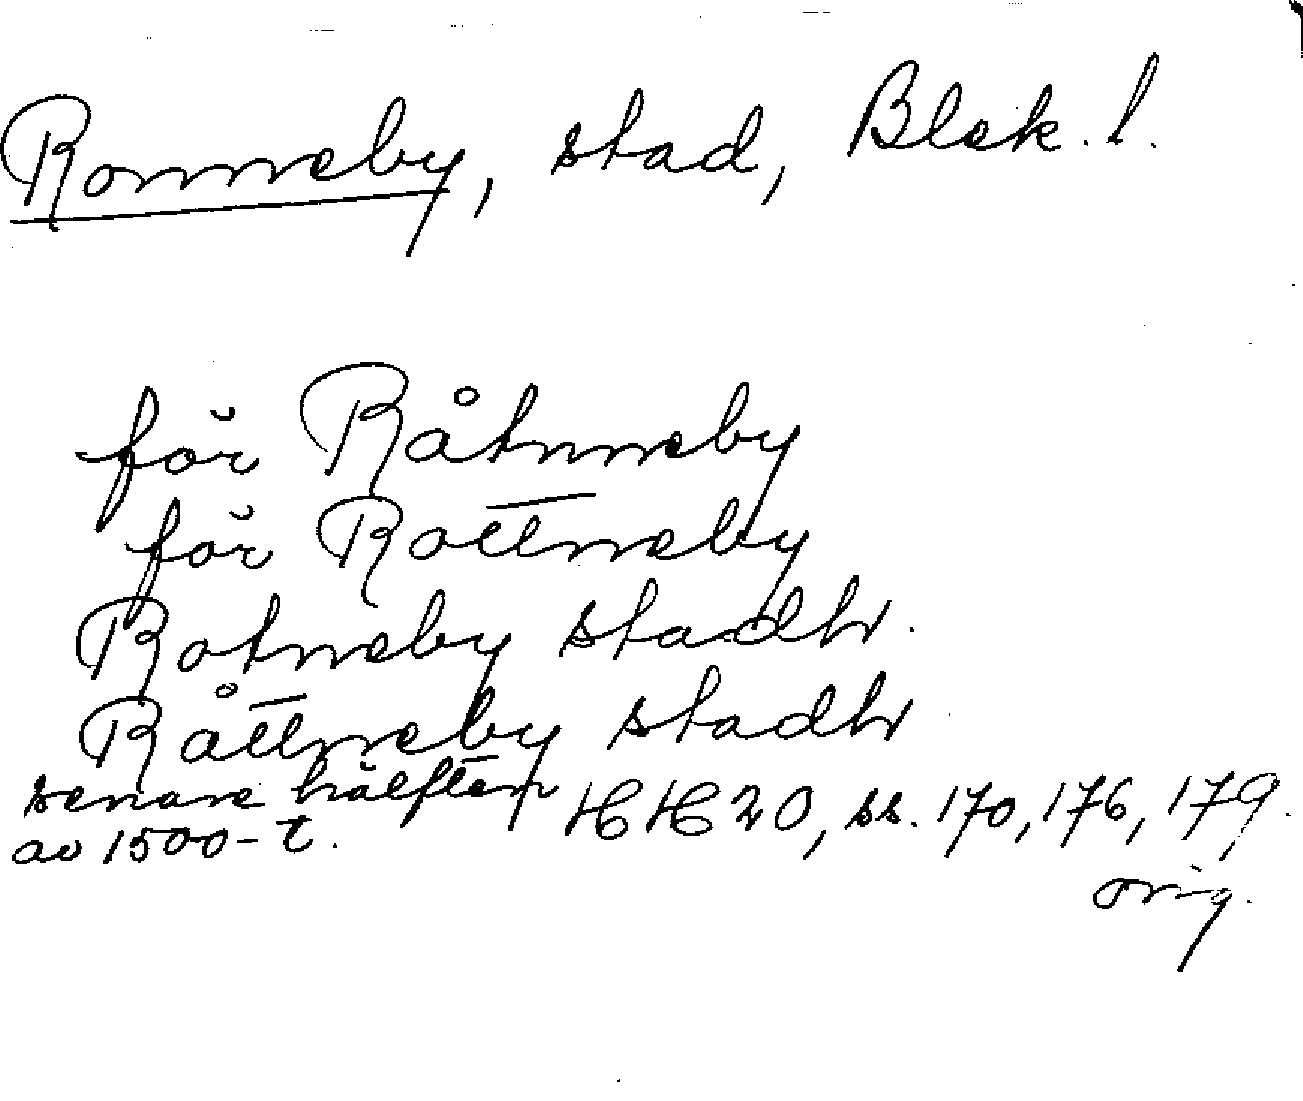 Ronneby, stad, Blek. l.
för Råtnneby
för Rottneby
Rotneby stadh.
Råttneby stadh
senare hälften
av 1500-t.
HH 20, ss. 170, 176, 179.
orig.